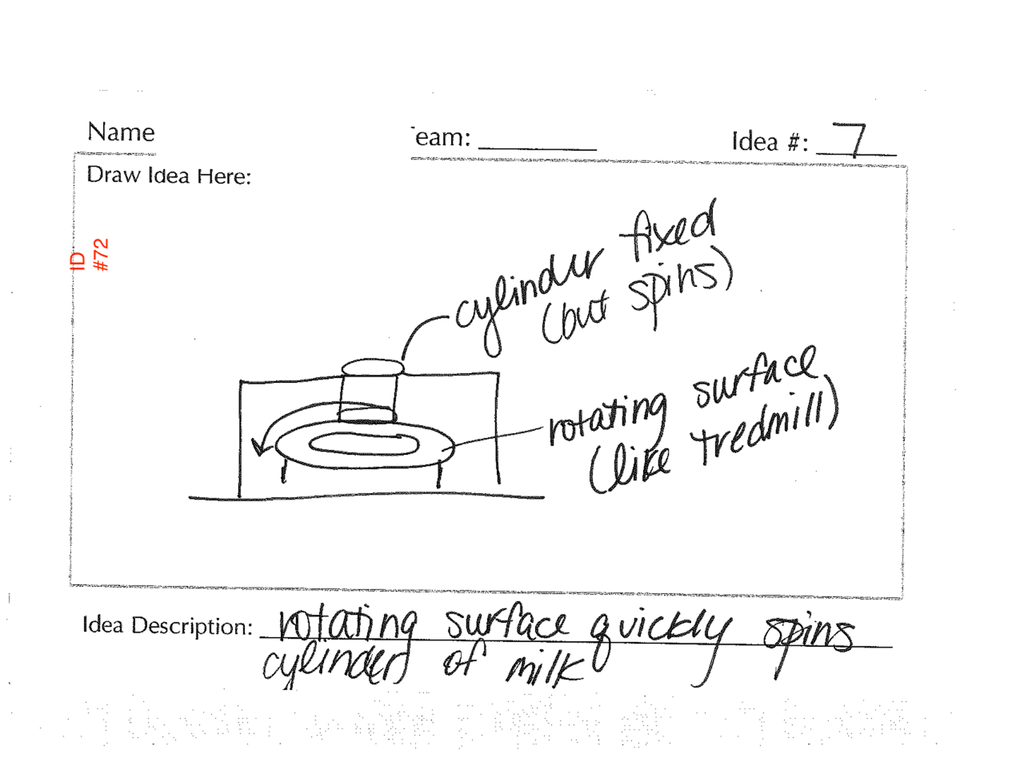 Name
eam:
Idea #: 7
Draw Idea Here:
ID
#72
cylinder fixed
(but spins)
rotating surface
(like tredmill)
Idea Description: rotating surface quickly spins
cylinder of milk